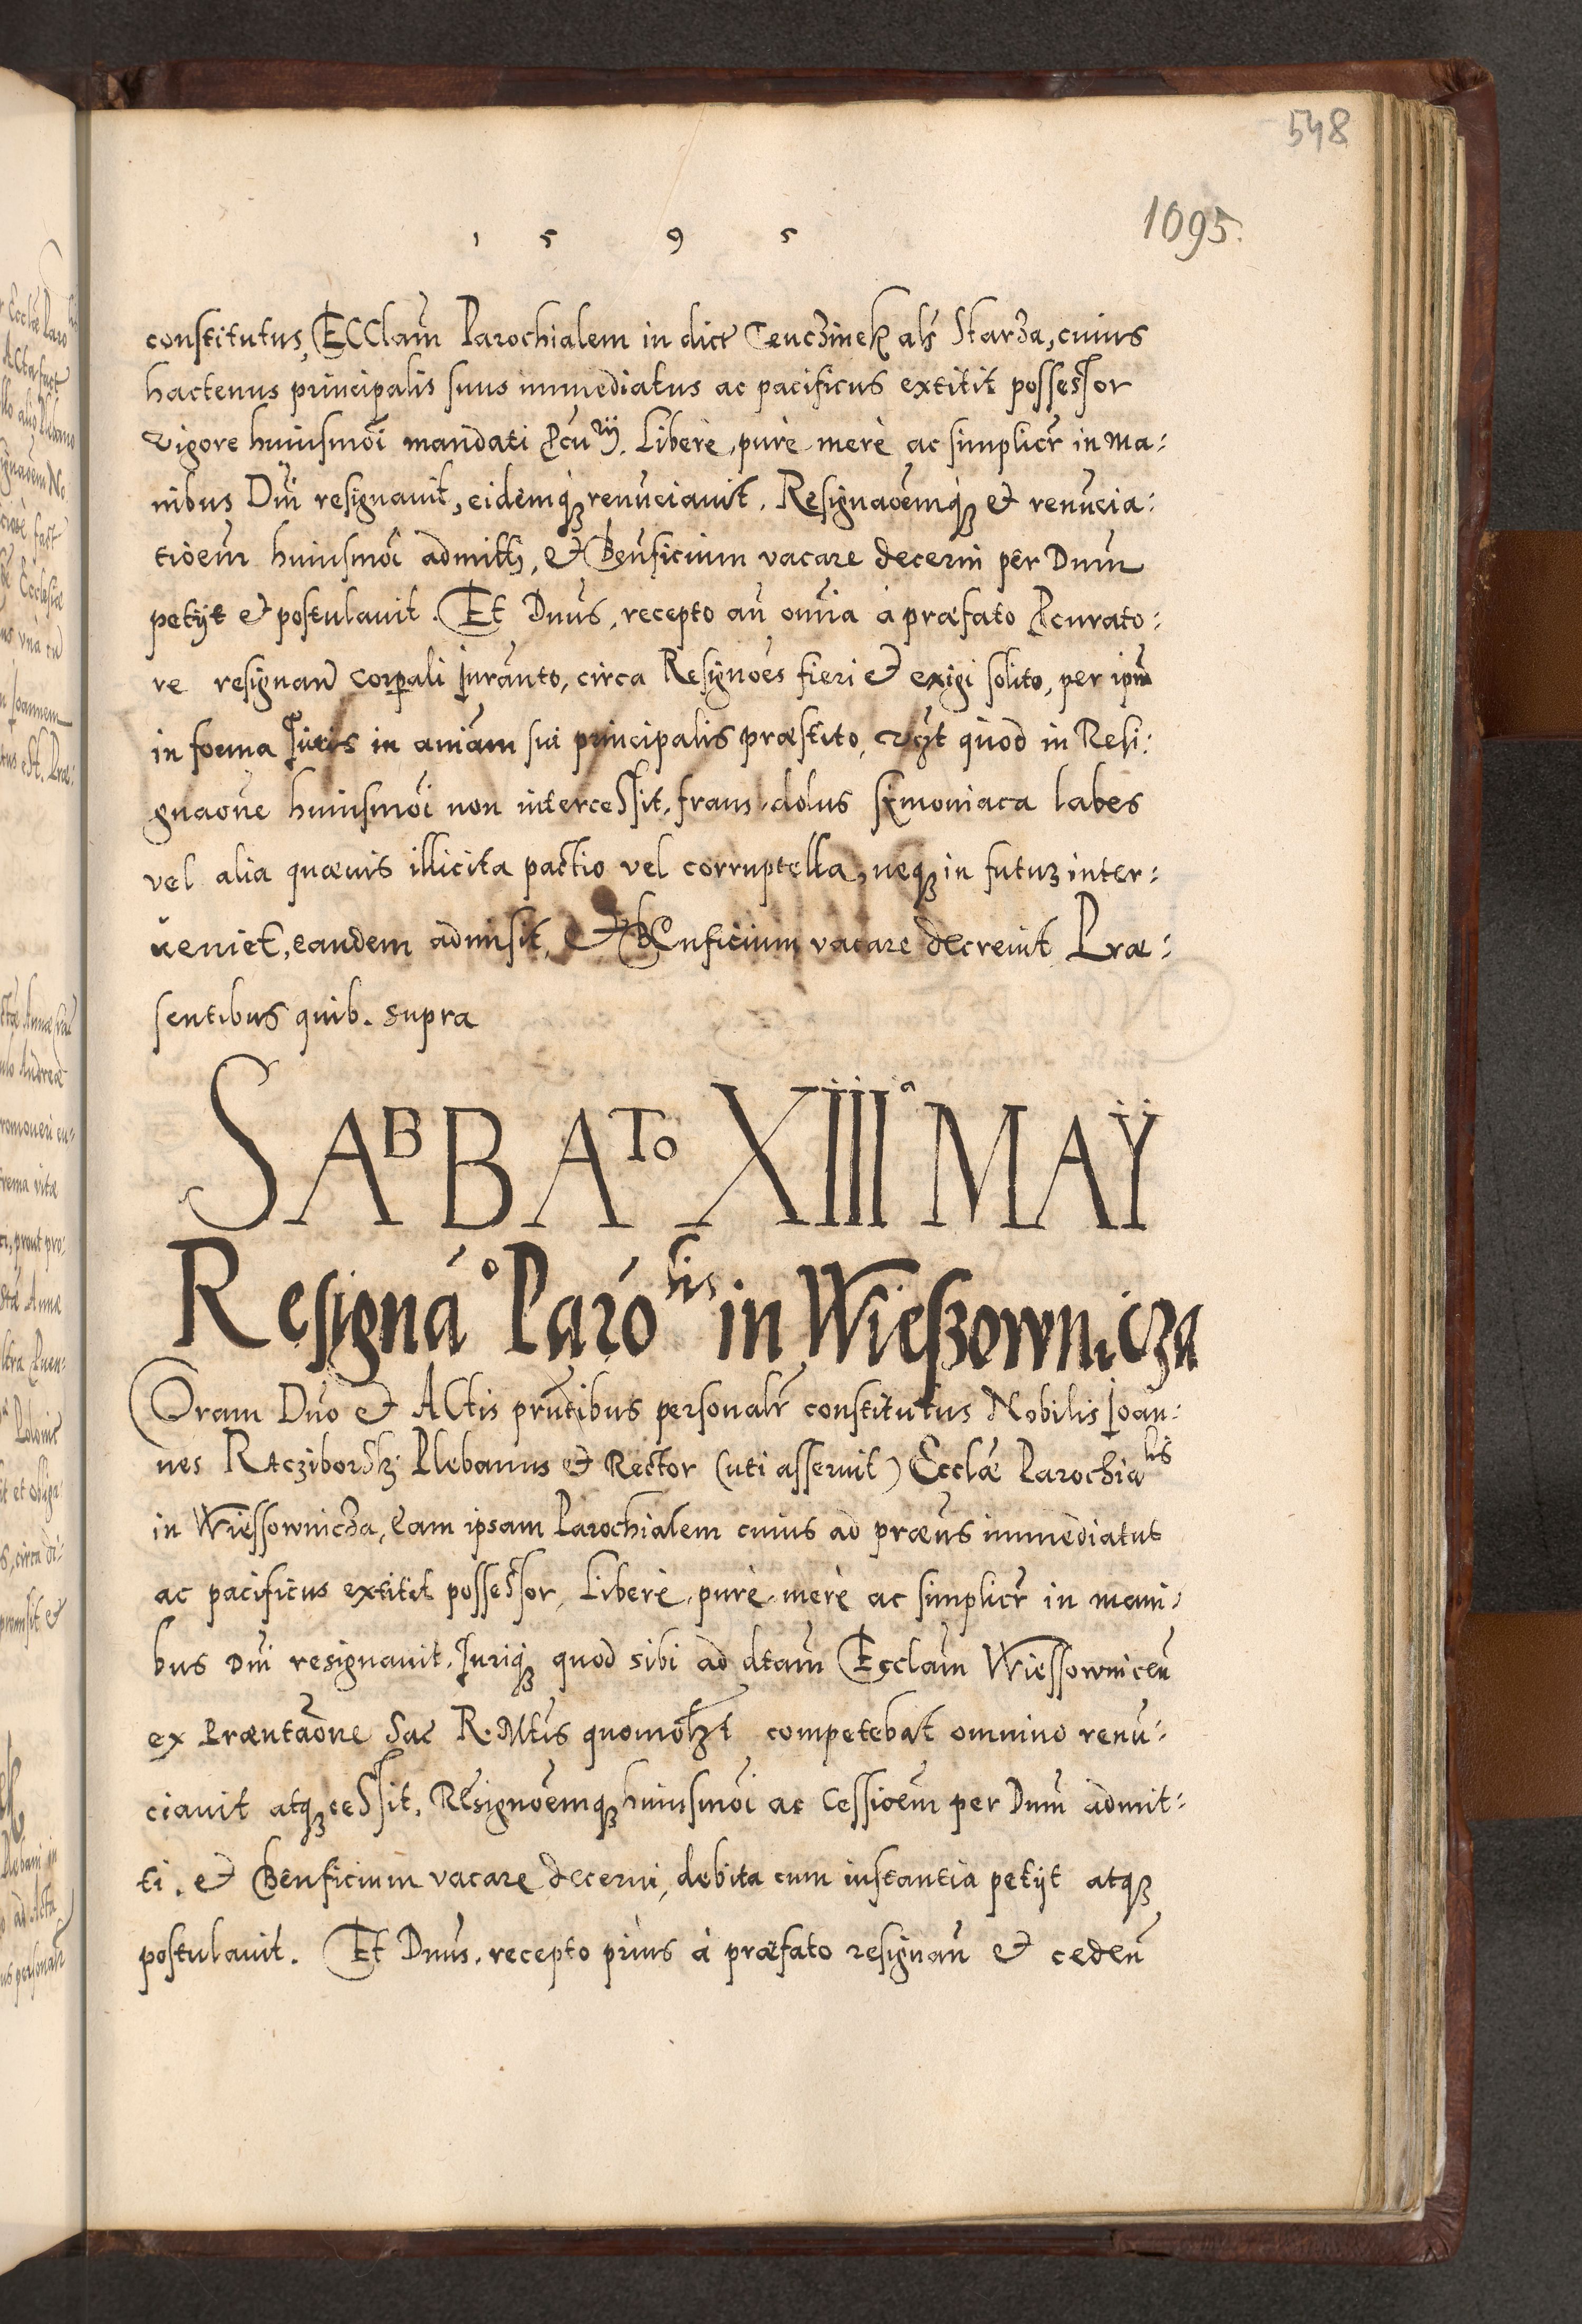 548
1095.
1 5 9 5
constitutus, ECClam̃ Parochialem in dict Tenczinek als̃ Starza, cuius
hactenus principalis suus immediatus ac pacificus extitit possessor
vigore huiusmõi mandati Pcurĩj. Liberè, purè merè ac simplicr̃ in ma:
nibus Dñi resignauit, eidemq́ʒ renũciauit. Resignaõemq́ʒ et renũcia:
tiõem huiusmõi admitti, et Beñficium vacare decerni per Dnum̃
petijt et postulauit. Et Dnũs, recepto añ omĩa à præfato Pcurato:
re resignañ corpali Iuram̃to, circa Resignões fieri et exigi solito, per ipm̃
in forma Iuris in aniam̃ sui principalis præstito, vẕt quod in Resi:
gnaoñe huiusmõi non intercessit, fraus, dolus simoniaca labes
vel alia quæuis illicita pactio vel corruptella, neqʒ in futuʒ inter:
ueniet, eandem admisit, et Beñficium vacare decreuit Præ:
sentibus quib. supra
SABBATO XIIIᵃ MAŸ
Resignaᵒ Parolis in Wieszownicza
Coram Dño et ACtis pñtibus personalr̃ constitutus Nobilis Ioan̄:
nes Raczibor̃sky Plebanus et Rector (uti asseruit) Ecclæ Parochialis
in Wiessownicza, Eam ipsam Parochialem cuius ad præñs immediatus
ac pacificus extitit possessor, Liberè, purè, merè ac simplicr̃ in mani:
bus Dñi resignauit, Iuriqʒ quod sibi ad dtam̃ Ecclam̃ Wiessowniceñ
ex Præntaõne Sac R. Mtis quomõlʒt competebat omnino renũ:
ciauit atqʒ cessit, Resignõemqʒ huiusmõi ac Cessiõem per Dnum̃ admit:
ti, et Beñficium vacare decerni, debita cum instantia petijt atqʒ
postulauit. Et Dnũs, recepto prius à præfato resignañ et cedeñ